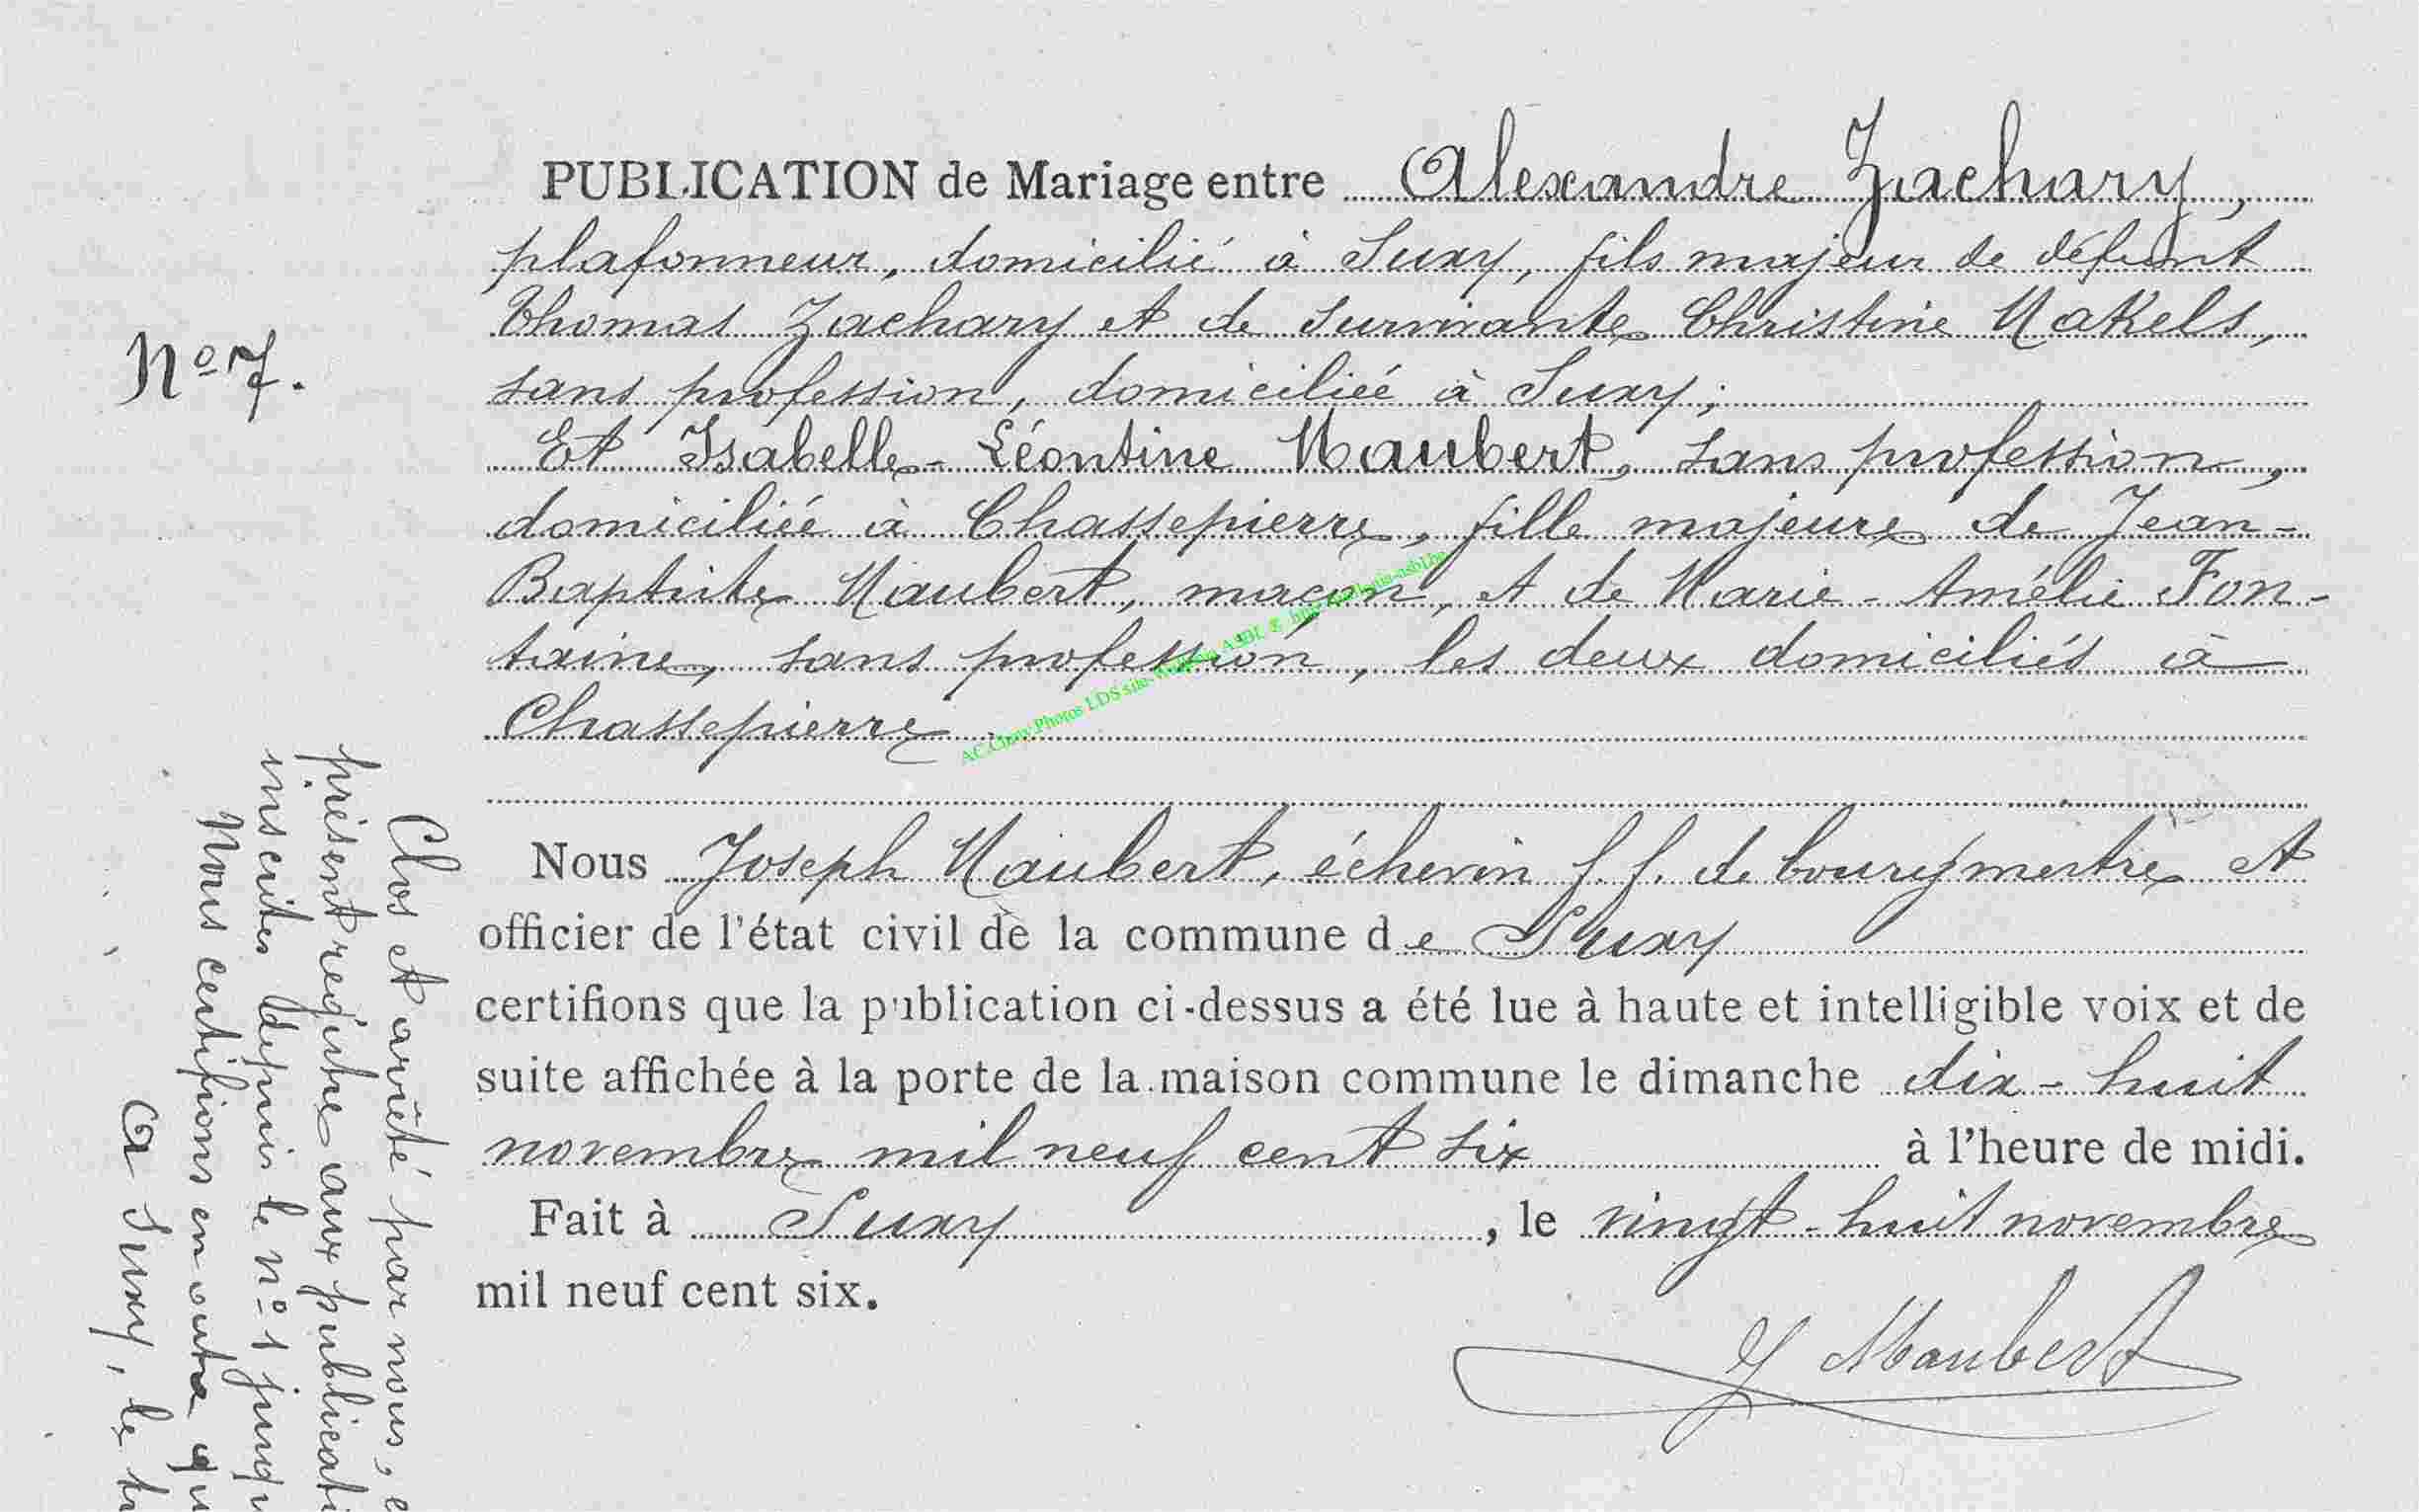 PUBLICATION de Mariage entre Alexandre Zachary,
plafonneur, domicilié à Suxy, fils majeur de défunt
Thomas Zachary et de survivante Christine Makels,
N° 7.
sans profession, domiciliée à Suxy;
Et Isabelle-Léontine Maubert, sans profession,
domiciliée à Chassepierre, fille majeure de Jean-
Baptiste Maubert, maçon, et de Marie-Amélie Fon-
taine, sans profession, les deux domiciliés à
Chassepierre
Nous Joseph Maubert, échevin f.f. de bourgmestre et
officier de l'état civil de la commune de Suxy
certifions que la publication ci-dessus a été lue à haute et intelligible voix et de
suite affichée à la porte de la maison commune le dimanche dix-huit
novembre mil neuf cent six à l'heure de midi.
Fait à Suxy, le vingt-huit novembre
mil neuf cent six.
J Maubert
Clos et arrêté par nous, e
présent registre aux publicati
inscrites depuis le n° 1 jusqu
Nous certifions en outre qu
A Suxy, le
AC Photos LDS